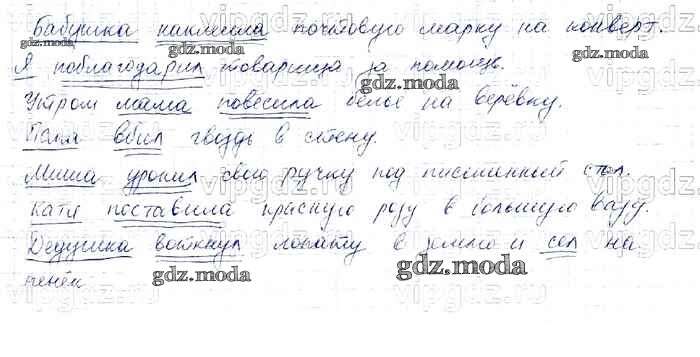 Бабушка наклеила почтовую марку на конверт.
Я поблагодарил товарища за помощь.
Утром мама повесила бельё на верёвку.
Папа вбил гвоздь в стену.
Миша уронил свою ручку под письменный стол.
Катя поставила красную розу в большую вазу.
Дедушка воткнул лопату в землю и сел на
пенёк
gdz.moda
gdz.moda
gdz.moda
gdz.moda
gdz.moda
gdz.moda
gdz.moda